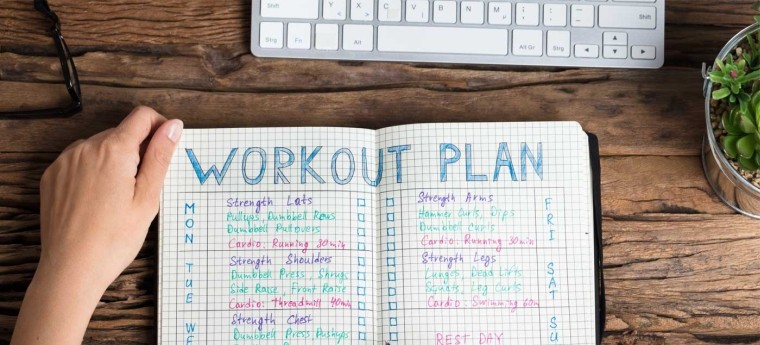 Shift Y X C V B N M ; : - Shift
Ctrl Fn Alt Alt Gr Ctrl
WORKOUT PLAN
MON
Strength Lats
Pullups, Dumbbell Rows
Dumbbell Pullovers
Cardio: Running 30min
TUE
Strength Shoulders
Dumbbell Press, Shrugs
Side Raise, Front Raise
Cardio: Threadmill 40min
WE
Strength Chest
Dumbbell Press, Pushups
FRI
Strength Arms
Hammer Curls, Dips
Dumbbell Curls
Cardio: Running 30min
SAT
Strength Legs
Lunges, Dead Lifts
Squats, Leg Curls
Cardio: Swimming 60m
SU
REST DAY